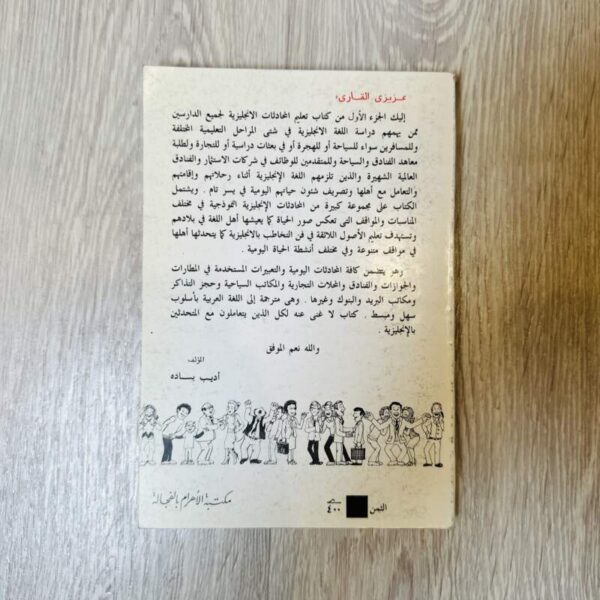 عزيزى القارىء
إليك الجزء الأول من كتاب تعليم المحادثات الانجليزية لجميع الدارسين
ممن يهمهم دراسة اللغة الانجليزية في شتى المراحل التعليمية المختلفة
وللمسافرين سواء للسياحة أو للهجرة أو في بعثات دراسية أو للتجارة ولطلبة
معاهد الفنادق والسياحة وللمتقدمين للوظائف في شركات الاستثمار والفنادق
العالمية الشهيرة والذين تلزمهم اللغة الإنجليزية أثناء رحلاتهم وإقامتهم
والتعامل مع أهلها وتصريف شئون حياتهم اليومية في يسر تام . ويشتمل
الكتاب على مجموعة كبيرة من المحادثات الإنجليزية النموذجية في مختلف
المناسبات والمواقف التى تعكس صور الحياة كما يعيشها أهل اللغة في بلادهم
وتستهدف تعليم الأصول اللائقة في فن التخاطب بالانجليزية كما يتحدثها أهلها
في مواقف متنوعة وفي مختلف أنشطة الحياة اليومية .
وهو يتضمن كافة المحادثات اليومية والتعبيرات المستخدمة في المطارات
والجوازات والفنادق والمحلات التجارية والمكاتب السياحية وحجز التذاكر
ومكاتب البريد والبنوك وغيرها . وهى مترجمة إلى اللغة العربية بأسلوب
سهل ومبسط . كتاب لا غنى عنه لكل الذين يتعاملون مع المتحدثين
بالإنجليزية .
والله نعم الموفق
المؤلف
أديب بساده
الثمن ٤٠٠
مكتبة الأهرام بالفجالة